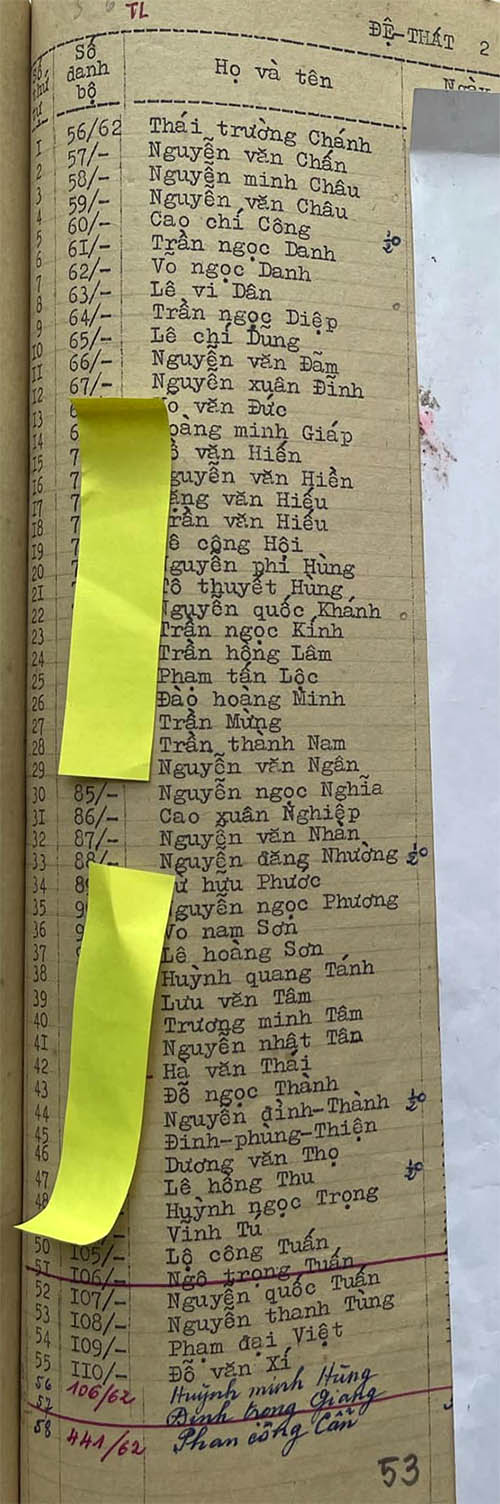 TL
ĐỆ-THẤT 2
Số thứ tự Số danh bộ Họ và tên Ngày
I 56/62 Thái trường Chánh
2 57/- Nguyễn văn Chấn
3 58/- Nguyễn minh Châu
4 59/- Nguyễn văn Châu
5 60/- Cao chí Công
6 6I/- Trần ngọc Danh
7 62/- Võ ngọc Danh
8 63/- Lê vi Dân
9 64/- Trần ngọc Diệp
I0 65/- Lê chí Dũng
II 66/- Nguyễn văn Đãm
I2 67/- Nguyễn xuân Đĩnh
I3 văn Đức
I4 minh Giáp
I5 văn Hiến
I6 Nguyễn văn Hiền
I7 văn Hiếu
I8 Trần văn Hiếu
I9 công Hội
20 Nguyễn phi Hùng
2I Tô thuyết Hùng
22 Nguyễn quốc Khánh
23 Trần ngọc Kính
24 Trần hồng Lâm
25 Phạm tấn Lộc
26 Đào hoàng Minh
27 Trần Mừng
28 Trần thành Nam
29 Nguyễn văn Ngân
30 85/- Nguyễn ngọc Nghĩa
3I 86/- Cao xuân Nghiệp
32 87/- Nguyễn văn Nhân
33 88/- Nguyễn đăng Nhường
34 hữu Phước
35 Nguyễn ngọc Phương
36 Võ nam Sơn
37 Lê hoàng Sơn
38 Huỳnh quang Tánh
39 Lưu văn Tâm
40 Trương minh Tâm
4I Nguyễn nhật Tân
42 Hà văn Thái
43 Đỗ ngọc Thành
44 Nguyễn đình-Thành
45 Đinh-phùng-Thiện
46 Dương văn Thọ
47 Lê hồng Thu
48 Huỳnh ngọc Trọng
Vĩnh Tú
50 I05/- Lộ công Tuấn
5I I06/- Ngô trọng Tuấn
52 I07/- Nguyễn quốc Tuấn
53 I08/- Nguyễn thanh Tùng
54 I09/- Phạm đại Việt
55 II0/- Đỗ văn Xí
56 106/62 Huỳnh minh Hùng
57 Đinh trọng Giang
58 441/62 Phan công Cẩn
53